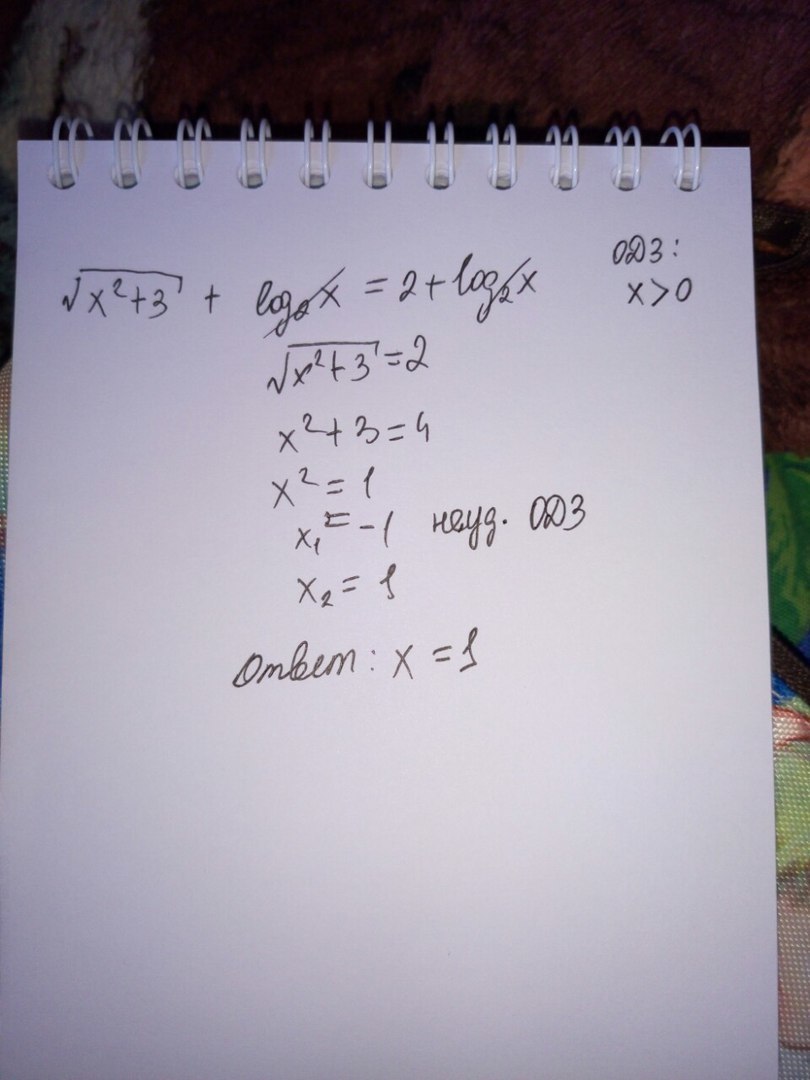 ОДЗ:
√x²+3 + log₂x = 2 + log₂x x>0
√x²+3 = 2
x²+3=4
x² = 1
x₁ = -1 неуд. ОДЗ
x₂ = 1
Ответ: x = 1